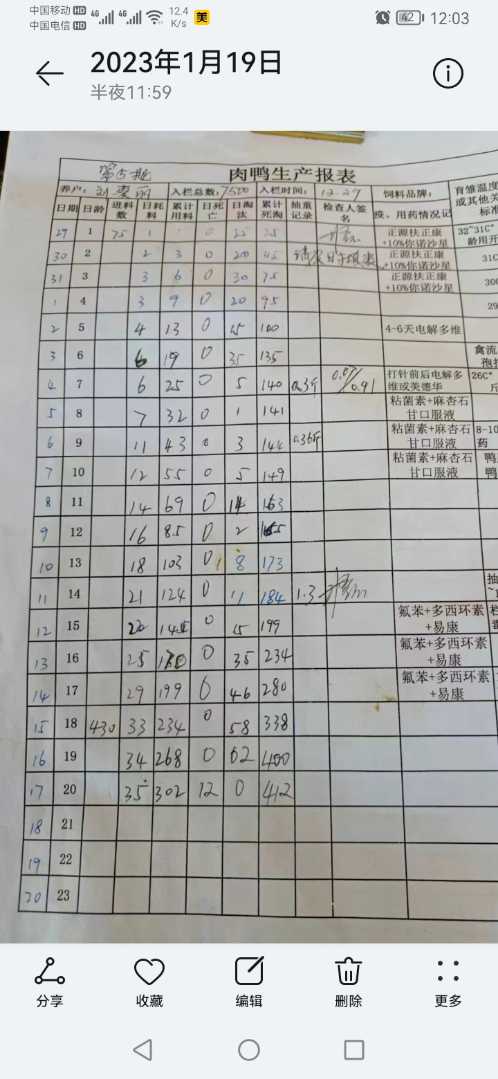 中国移动 HD 4G 4G 12.4 K/s 美 42 12:03
中国电信 HD
2023年1月19日
半夜11:59
肉鸭生产报表
养户: 入栏总数: 7500 入栏时间: 12.27 饲料品牌: 育雏温度
日期 日龄 进料数 日耗料 累计用料 日死亡 日淘汰 累计死淘 抽重记录 检查人签名 疫、用药情况记 或其他关 标准
29 1 75 1 1 0 25 25 正源扶正康+10%你诺沙星 32~31C°
30 2 2 3 0 20 45 正源扶正康+10%你诺沙星 31C
31 3 3 6 0 30 75 正源扶正康+10%你诺沙星 30
1 4 3 9 0 20 95 29
2 5 4 13 0 15 100 4-6天电解多维
3 6 6 19 0 35 135 禽流
4 7 6 25 0 5 140 0.3斤 打针前后电解多维或美德华 26C°
5 8 7 32 0 1 141 粘菌素+麻杏石甘口服液
6 9 11 43 0 3 144 0.36斤 粘菌素+麻杏石甘口服液 8-10 药
7 10 12 55 0 5 149 粘菌素+麻杏石甘口服液 鸭 鸭
8 11 14 69 0 14 163
9 12 16 85 0 2 165
10 13 18 103 0 8 173
11 14 21 124 0 11 184 1.3 抽
12 15 0 15 199 氟苯+多西环素+易康
13 16 25 0 35 234 氟苯+多西环素+易康
14 17 29 199 0 46 280 氟苯+多西环素+易康
15 18 430 33 234 0 58 338
16 19 34 268 0 62 400
17 20 35 302 12 0 412
18 21
19 22
20 23
分享 收藏 编辑 删除 更多